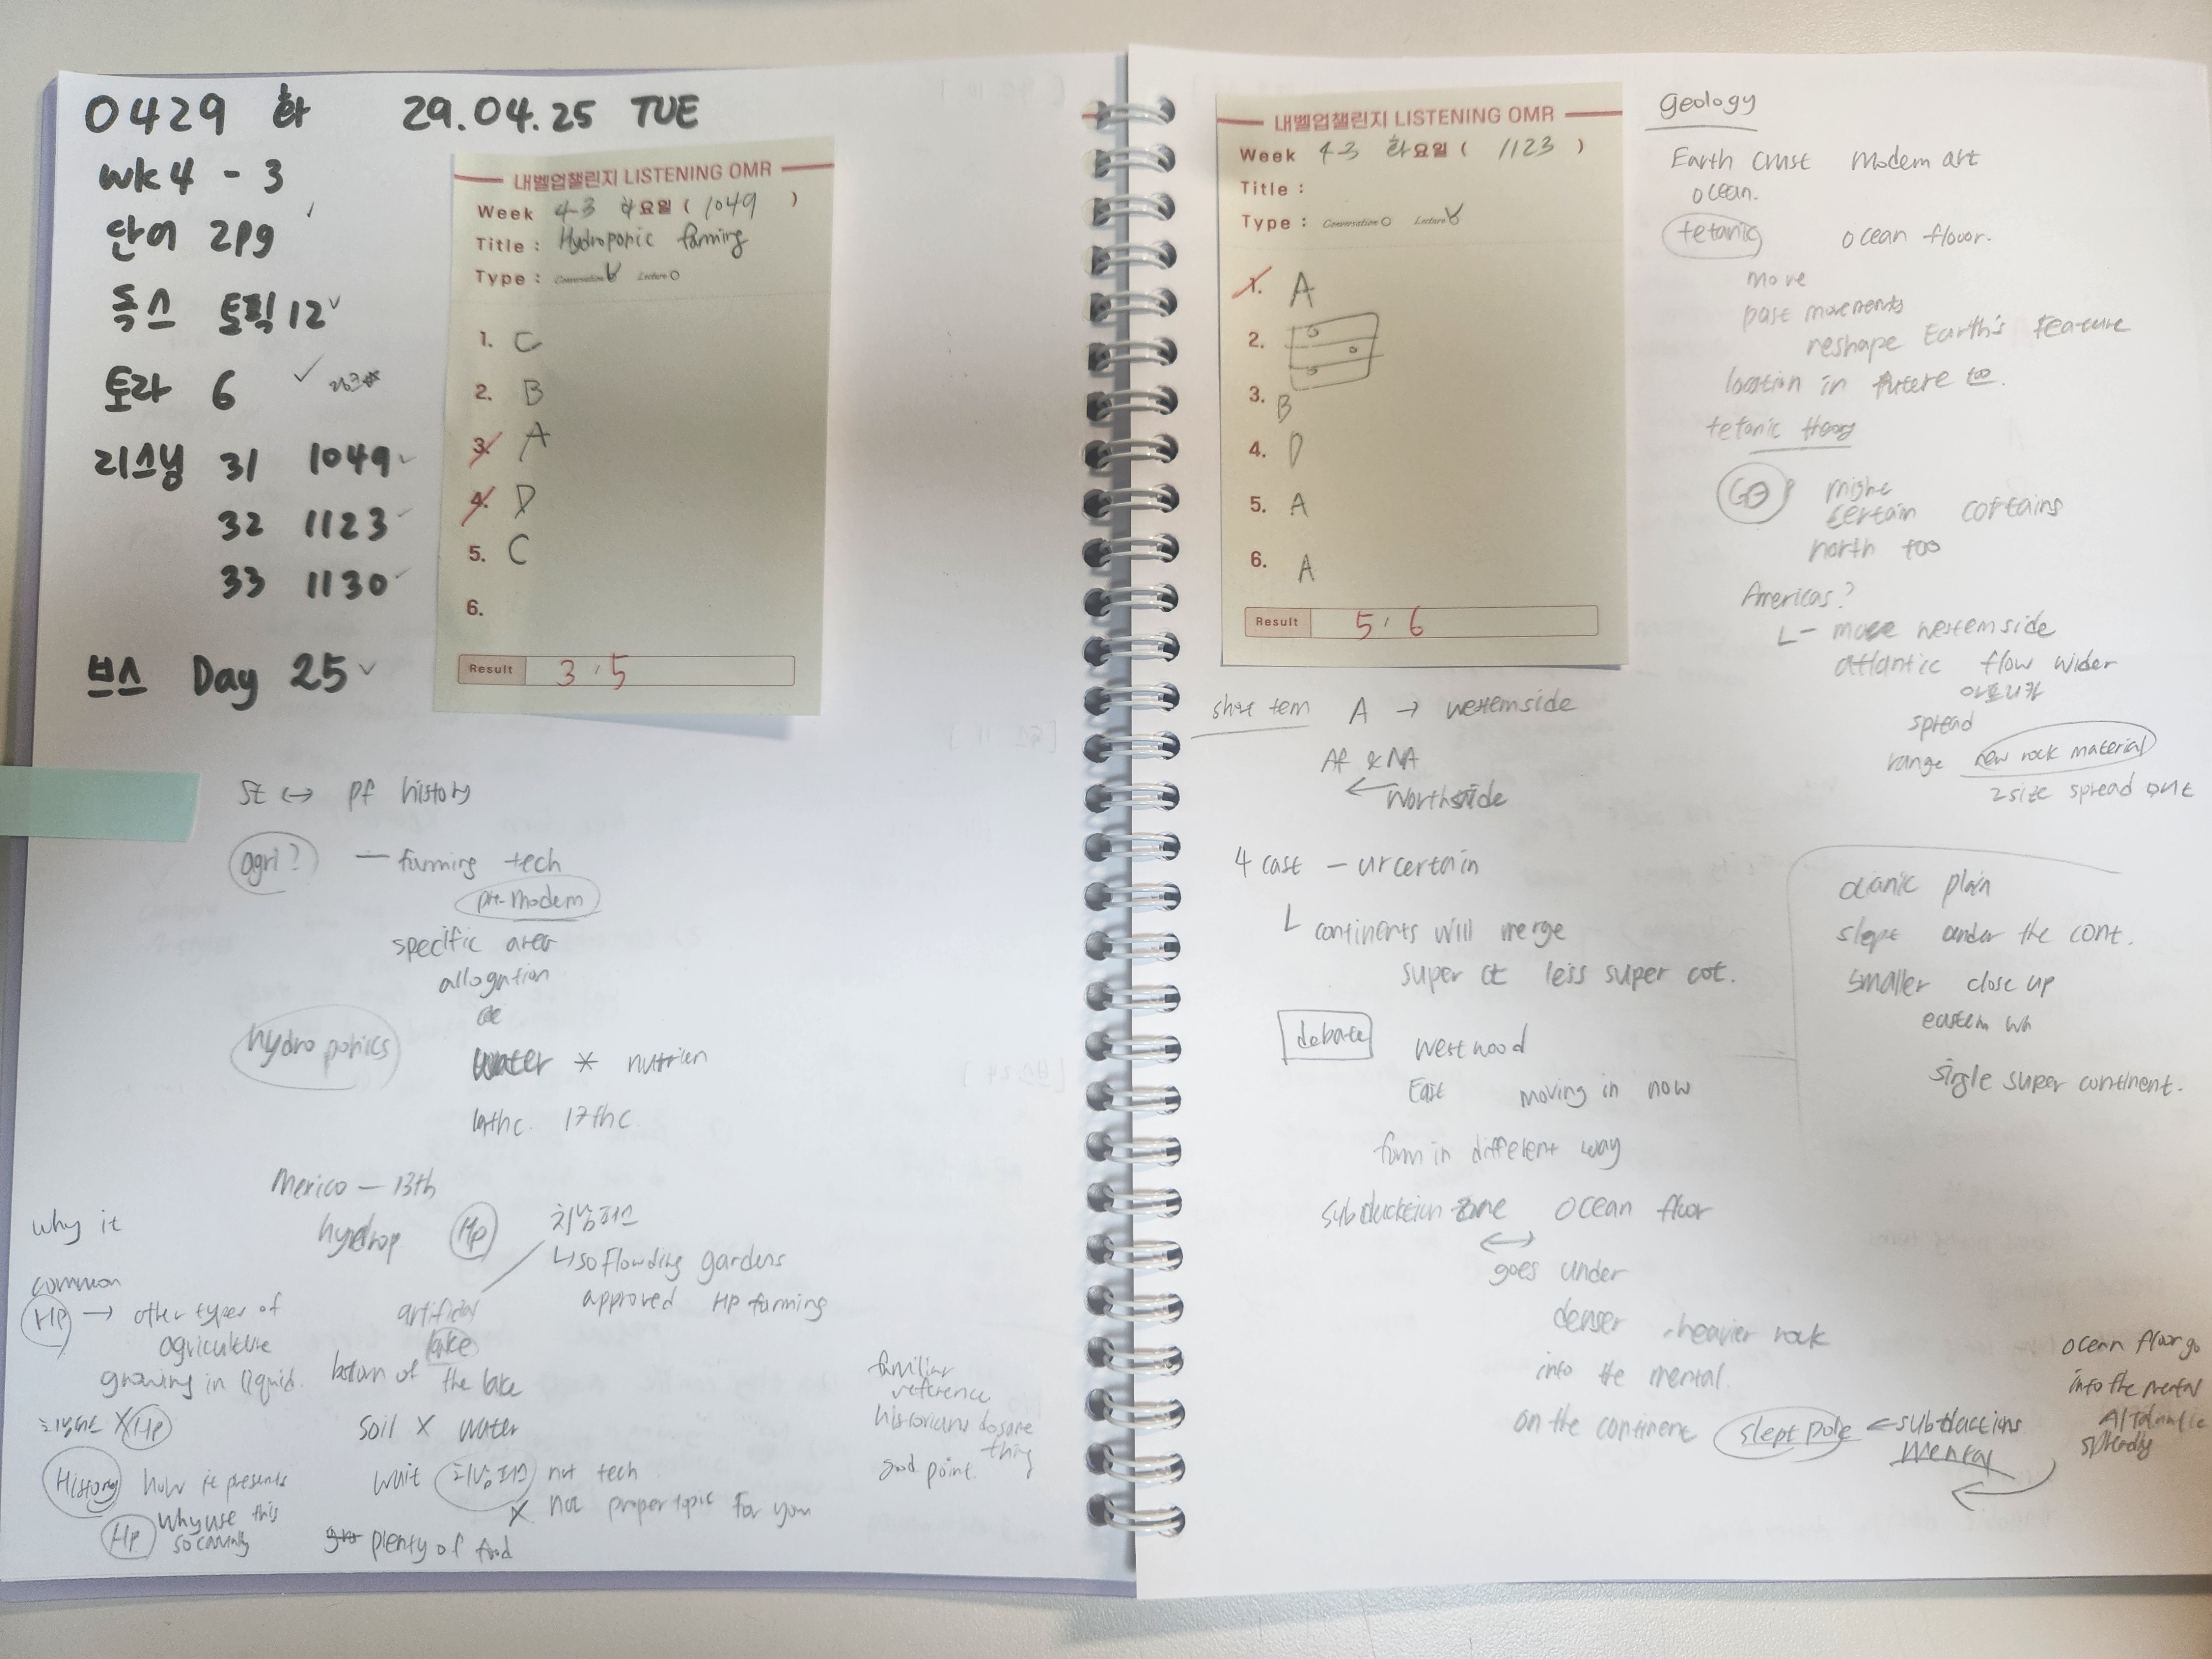 0429 화 29.04.25 TUE
wk 4 - 3
단어 2pg
독스 토픽 12
토라 6
리스닝 31 1049
32 1123
33 1130
브스 Day 25
내벨업챌린지 LISTENING OMR
Week 4-3 화요일 ( 1049 )
Title : Hydroponic farming
Type : Conversation Lecture
1. C
2. B
3. A
4. D
5. C
6.
Result 3 / 5
St ↔ pf history
agri? — farming tech
pre-modern
specific area
allogation
hydroponics
water * nutrien
17thc
Mexico — 13th
hydrop Hp 치남피스
↳ so flowding gardens
approved HP farming
why it
common
HP → other types of
agriculture
growing in liquid.
치남피스 X HP
History how it presents
Hp why use this
artificial
lake
bottom of the lake
soil X water
wait 치남피스 not tech
X not proper topic for you
plenty of food
familiar
reference
historians dosame
thing
good point.
내벨업챌린지 LISTENING OMR
Week 4-3 화요일 ( 1123 )
Title :
Type : Conversation Lecture
1. A
2.
3. B
4. D
5. A
6. A
Result 5 / 6
geology
Earth crust modern art
ocean.
tetanic ocean flooor.
move
past movements
reshape Earth's Feature
location in future too.
tetanic theory
might
certain contains
north too
Americas?
L- move westernside
atlantic flow wider
아프리카
spread
range new rock material
2 size spread out
short term A → westernside
Af & NA
← Northside
4 cast - uncertain
L continents will merge
super ct less super cot.
debate westwood
East moving in now
form in different way
subduckction zone ocean floor
↔
goes under
denser heavier rock
into the mental.
on the continent slept pole ← subductions
mental
ocean floor go
into the mental
oceanic plain
slept under the cont.
smaller close up
eastern wh
single super continent.